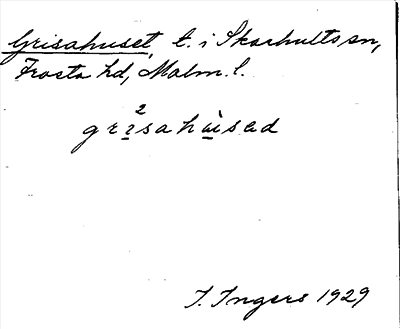 Grisahuset, t. i Skarhults sn,
Frosta hd, Malm. l.
gri²sahùsad
I. Ingers 1929